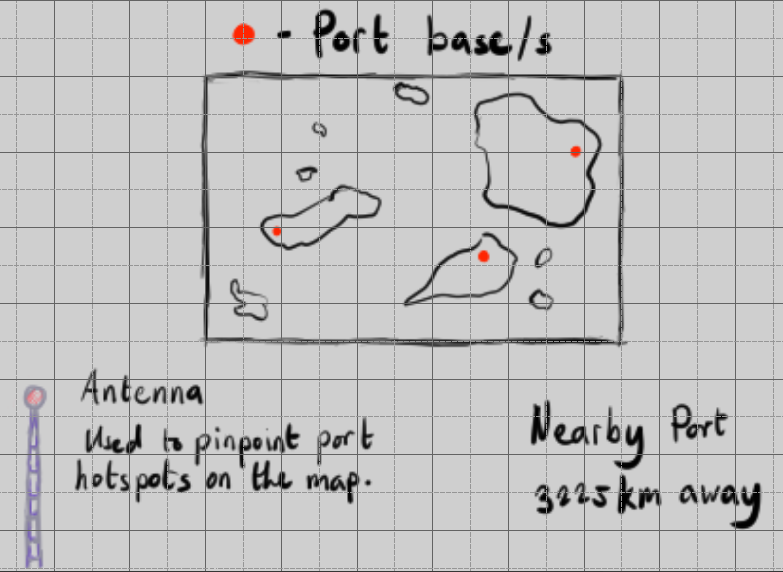 - Port base/s
Antenna
Used to pinpoint port
hotspots on the map.
Nearby Port
3225km away